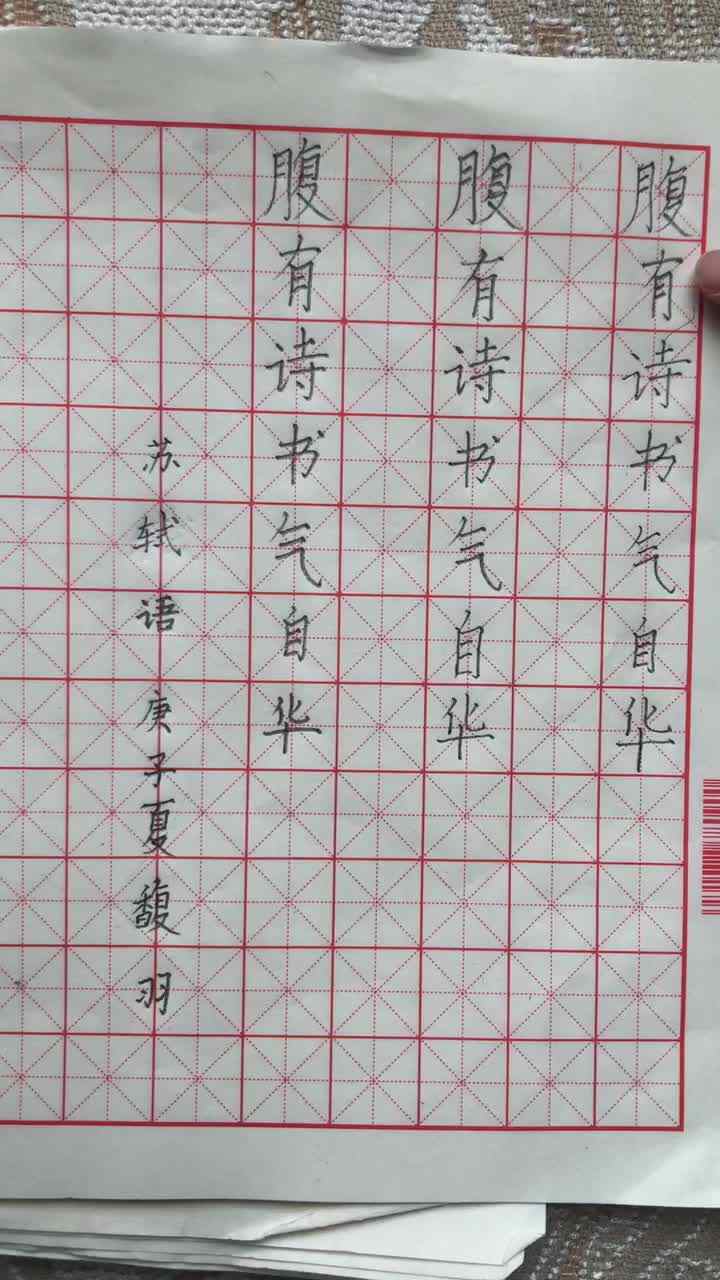 腹有诗书气自华
腹有诗书气自华
腹有诗书气自华
苏轼语 庚子夏 馥羽